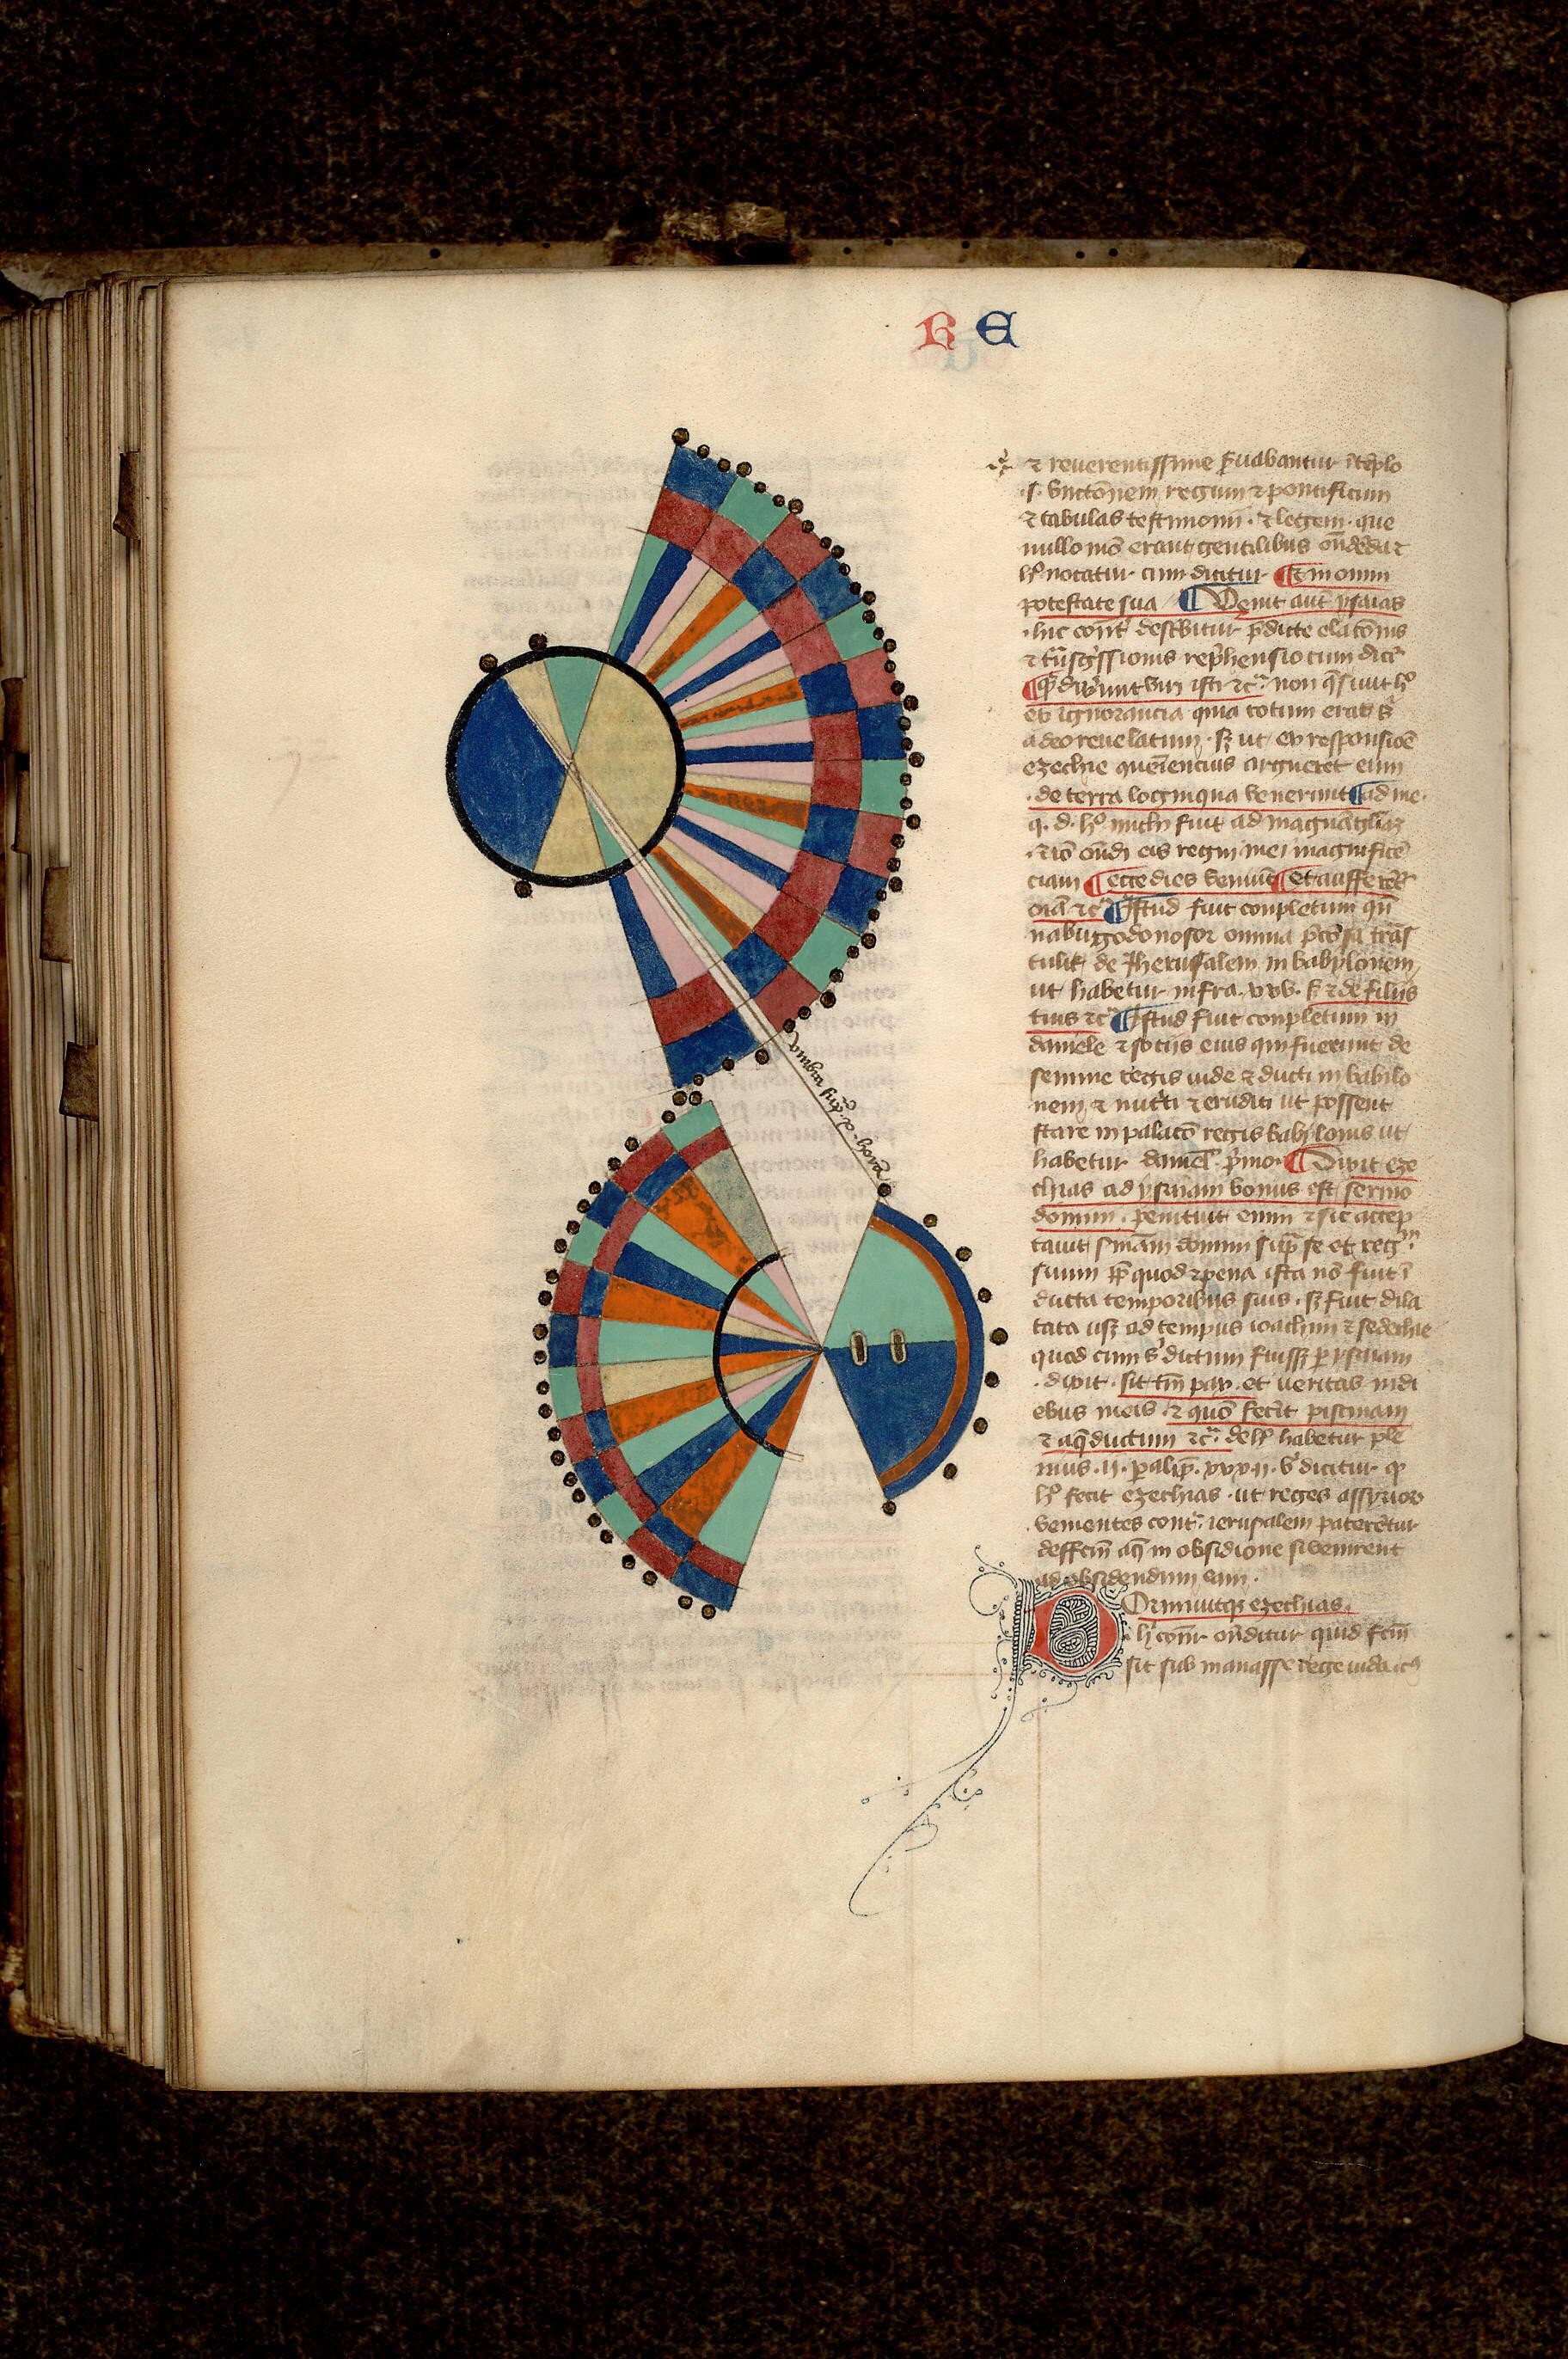 R E
⁊ reuerentissime ẜuabantur ī tēplo
.s. vnctōnem regum ⁊ pontificum
⁊ tabulas testimonii . ⁊ legem . que
nullo mō erant gentilibus
h° notatur cum dicitur ¶ Et in omni
potestate sua ¶ Venit aut ysaias
. hic cont̄ describitur p̄dicte elatōnis
⁊ reprehensio cum dicit
¶ Qd dixerunt viri isti ⁊c̄ . non q̄siuit h°
ex ignorancia quia totum erat s
a deo reuelatum . sꝫ ut ex responsiōe
ezechie argueret eum
. de terra longinqua venerunt ¶ ad me .
q . d . h° michi fuit ad magnā gl̄iaꝫ
. ⁊ iō eis regni mei magnificē
ciam ¶ ecce dies veniūt ¶ et aufferēt̄
oīa ⁊c̄ ¶ Istud fuit conpletum qn̄
nabugodonosor omnia p̄cōsa trās
tulit de Jherusalem in babylonem
ut habetur infra . xxv . ⁊ de filiis
tuis ⁊c̄ ¶ Istud fuit conpletum in
daniele ⁊ sociis eius qui fuerunt de
semine regis iude ⁊ ducti in babilo
nem ⁊ nutriti ⁊ eruditi ut possent
stare in palacō regis babylonis ut
habetur daniel . p̄mo . ¶ Dixit eze
chias ad ysaiam bonus est sermo
domini . penituit enim ⁊ sic accep
tauit sn̄iam domini sup̄ se et regn̄
suum quod ⁊ pena ista nō fuit ī
ducta temporibus suis . sꝫ fuit dila
tata usꝫ ad tempus ioachim ⁊ sedechie
quod cum dictum fuissꝫ p̲ ysaiam
. dixit . sit tm̄ pax . et veritas in di
ebus meis . ⁊ quō fecit piscinam
⁊ aq̄ductum ⁊c̄ . de h° habetur ple
nius . ii . paralip̄ . xxxii . dicitur q̲
h° fecit ezechias . ut reges assyrior̄
venientes cont̄ ierusalem paterētur
deffctm̄ aq̄ in obsidione si venirent
ad obsidendum eam .
Dormiuitqꝫ ezechias .
. hic cont̄ onditur quid fctm̄
sit sub manasse rege iuda